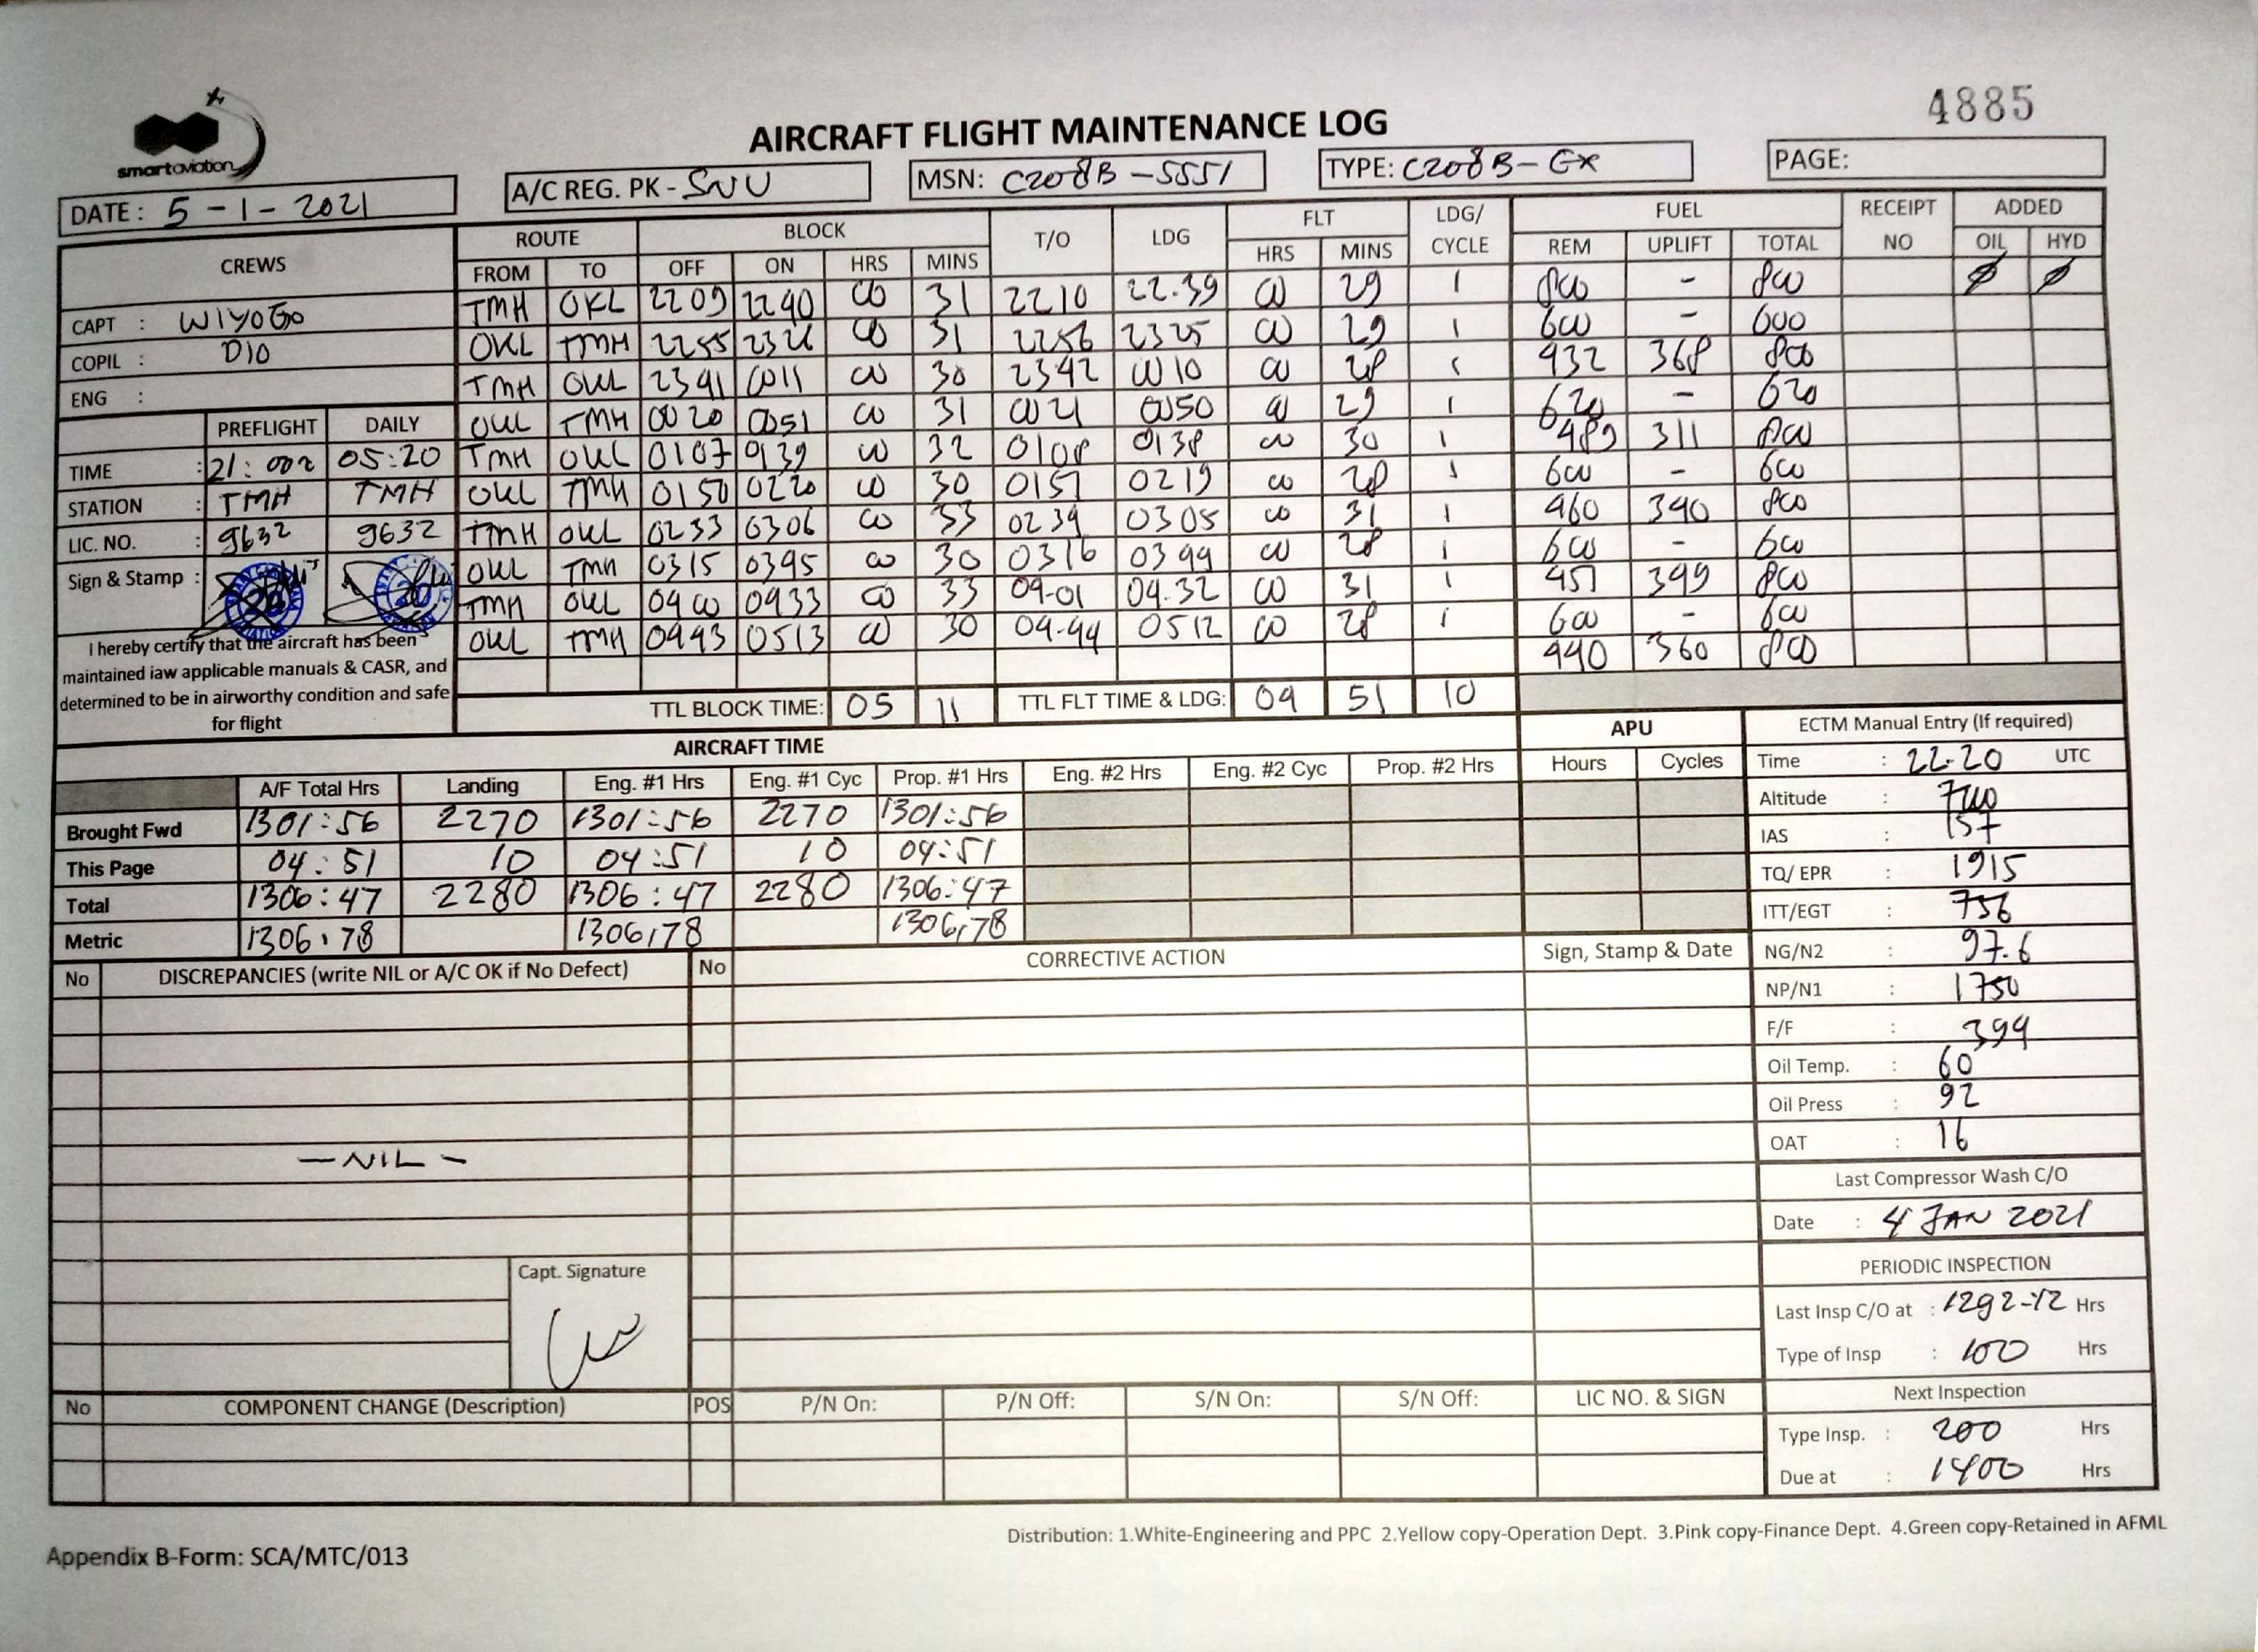 4885
smart aviation
AIRCRAFT FLIGHT MAINTENANCE LOG
DATE : 5-1-2021 A/C REG. PK - SNU MSN: C208B-5551 TYPE: C208B-GX PAGE:
CREWS ROUTE BLOCK T/O LDG FLT LDG/ CYCLE FUEL RECEIPT NO ADDED
FROM TO OFF ON HRS MINS HRS MINS REM UPLIFT TOTAL OIL HYD
TMH OKL 2209 2240 00 31 2210 22.39 00 29 1 800 - 800 Ø Ø
CAPT : WIYOGO
OKL TMH 2255 2326 00 31 2256 2325 00 29 1 600 - 600
COPIL : DIO
TMH OKL 2341 0011 00 30 2342 0010 00 28 1 432 368 800
ENG :
OKL TMH 0020 0051 00 31 0021 0050 00 29 1 620 - 620
PREFLIGHT DAILY
TMH OKL 0107 0139 00 32 0108 0138 00 30 1 489 311 800
TIME : 21:00z 05:20
OKL TMH 0150 0220 00 30 0151 0219 00 28 1 600 - 600
STATION : TMH TMH
TMH OKL 0233 0306 00 33 0234 0305 00 31 1 460 340 800
LIC. NO. : 9632 9632
OKL TMH 0315 0345 00 30 0316 0344 00 28 1 600 - 600
Sign & Stamp :
TMH OKL 0400 0433 00 33 04-01 04.32 00 31 1 451 349 800
OKL TMH 0443 0513 00 30 04-44 0512 00 28 1 600 - 600
440 360 800
I hereby certify that the aircraft has been
maintained iaw applicable manuals & CASR, and
determined to be in airworthy condition and safe
for flight
TTL BLOCK TIME: 05 11 TTL FLT TIME & LDG: 04 51 10
AIRCRAFT TIME APU ECTM Manual Entry (If required)
A/F Total Hrs Landing Eng. #1 Hrs Eng. #1 Cyc Prop. #1 Hrs Eng. #2 Hrs Eng. #2 Cyc Prop. #2 Hrs Hours Cycles
Brought Fwd 1301:56 2270 1301:56 2270 1301:56
This Page 04:51 10 04:51 10 04:51
Total 1306:47 2280 1306:47 2280 1306:47
Metric 1306,78 1306,78 1306,78
Time : 22.20 UTC
Altitude :
IAS : 157
TQ/ EPR : 1915
ITT/EGT : 756
NG/N2 : 97.6
NP/N1 : 1750
F/F : 394
Oil Temp. : 60
Oil Press : 92
OAT : 16
Last Compressor Wash C/O
Date : 4 JAN 2021
PERIODIC INSPECTION
Last Insp C/O at : 1292-12 Hrs
Type of Insp : 100 Hrs
Next Inspection
Type Insp. : 200 Hrs
Due at : 1400 Hrs
No DISCREPANCIES (write NIL or A/C OK if No Defect) No CORRECTIVE ACTION Sign, Stamp & Date
- NIL -
Capt. Signature
No COMPONENT CHANGE (Description) POS P/N On: P/N Off: S/N On: S/N Off: LIC NO. & SIGN
Distribution: 1.White-Engineering and PPC 2.Yellow copy-Operation Dept. 3.Pink copy-Finance Dept. 4.Green copy-Retained in AFML
Appendix B-Form: SCA/MTC/013